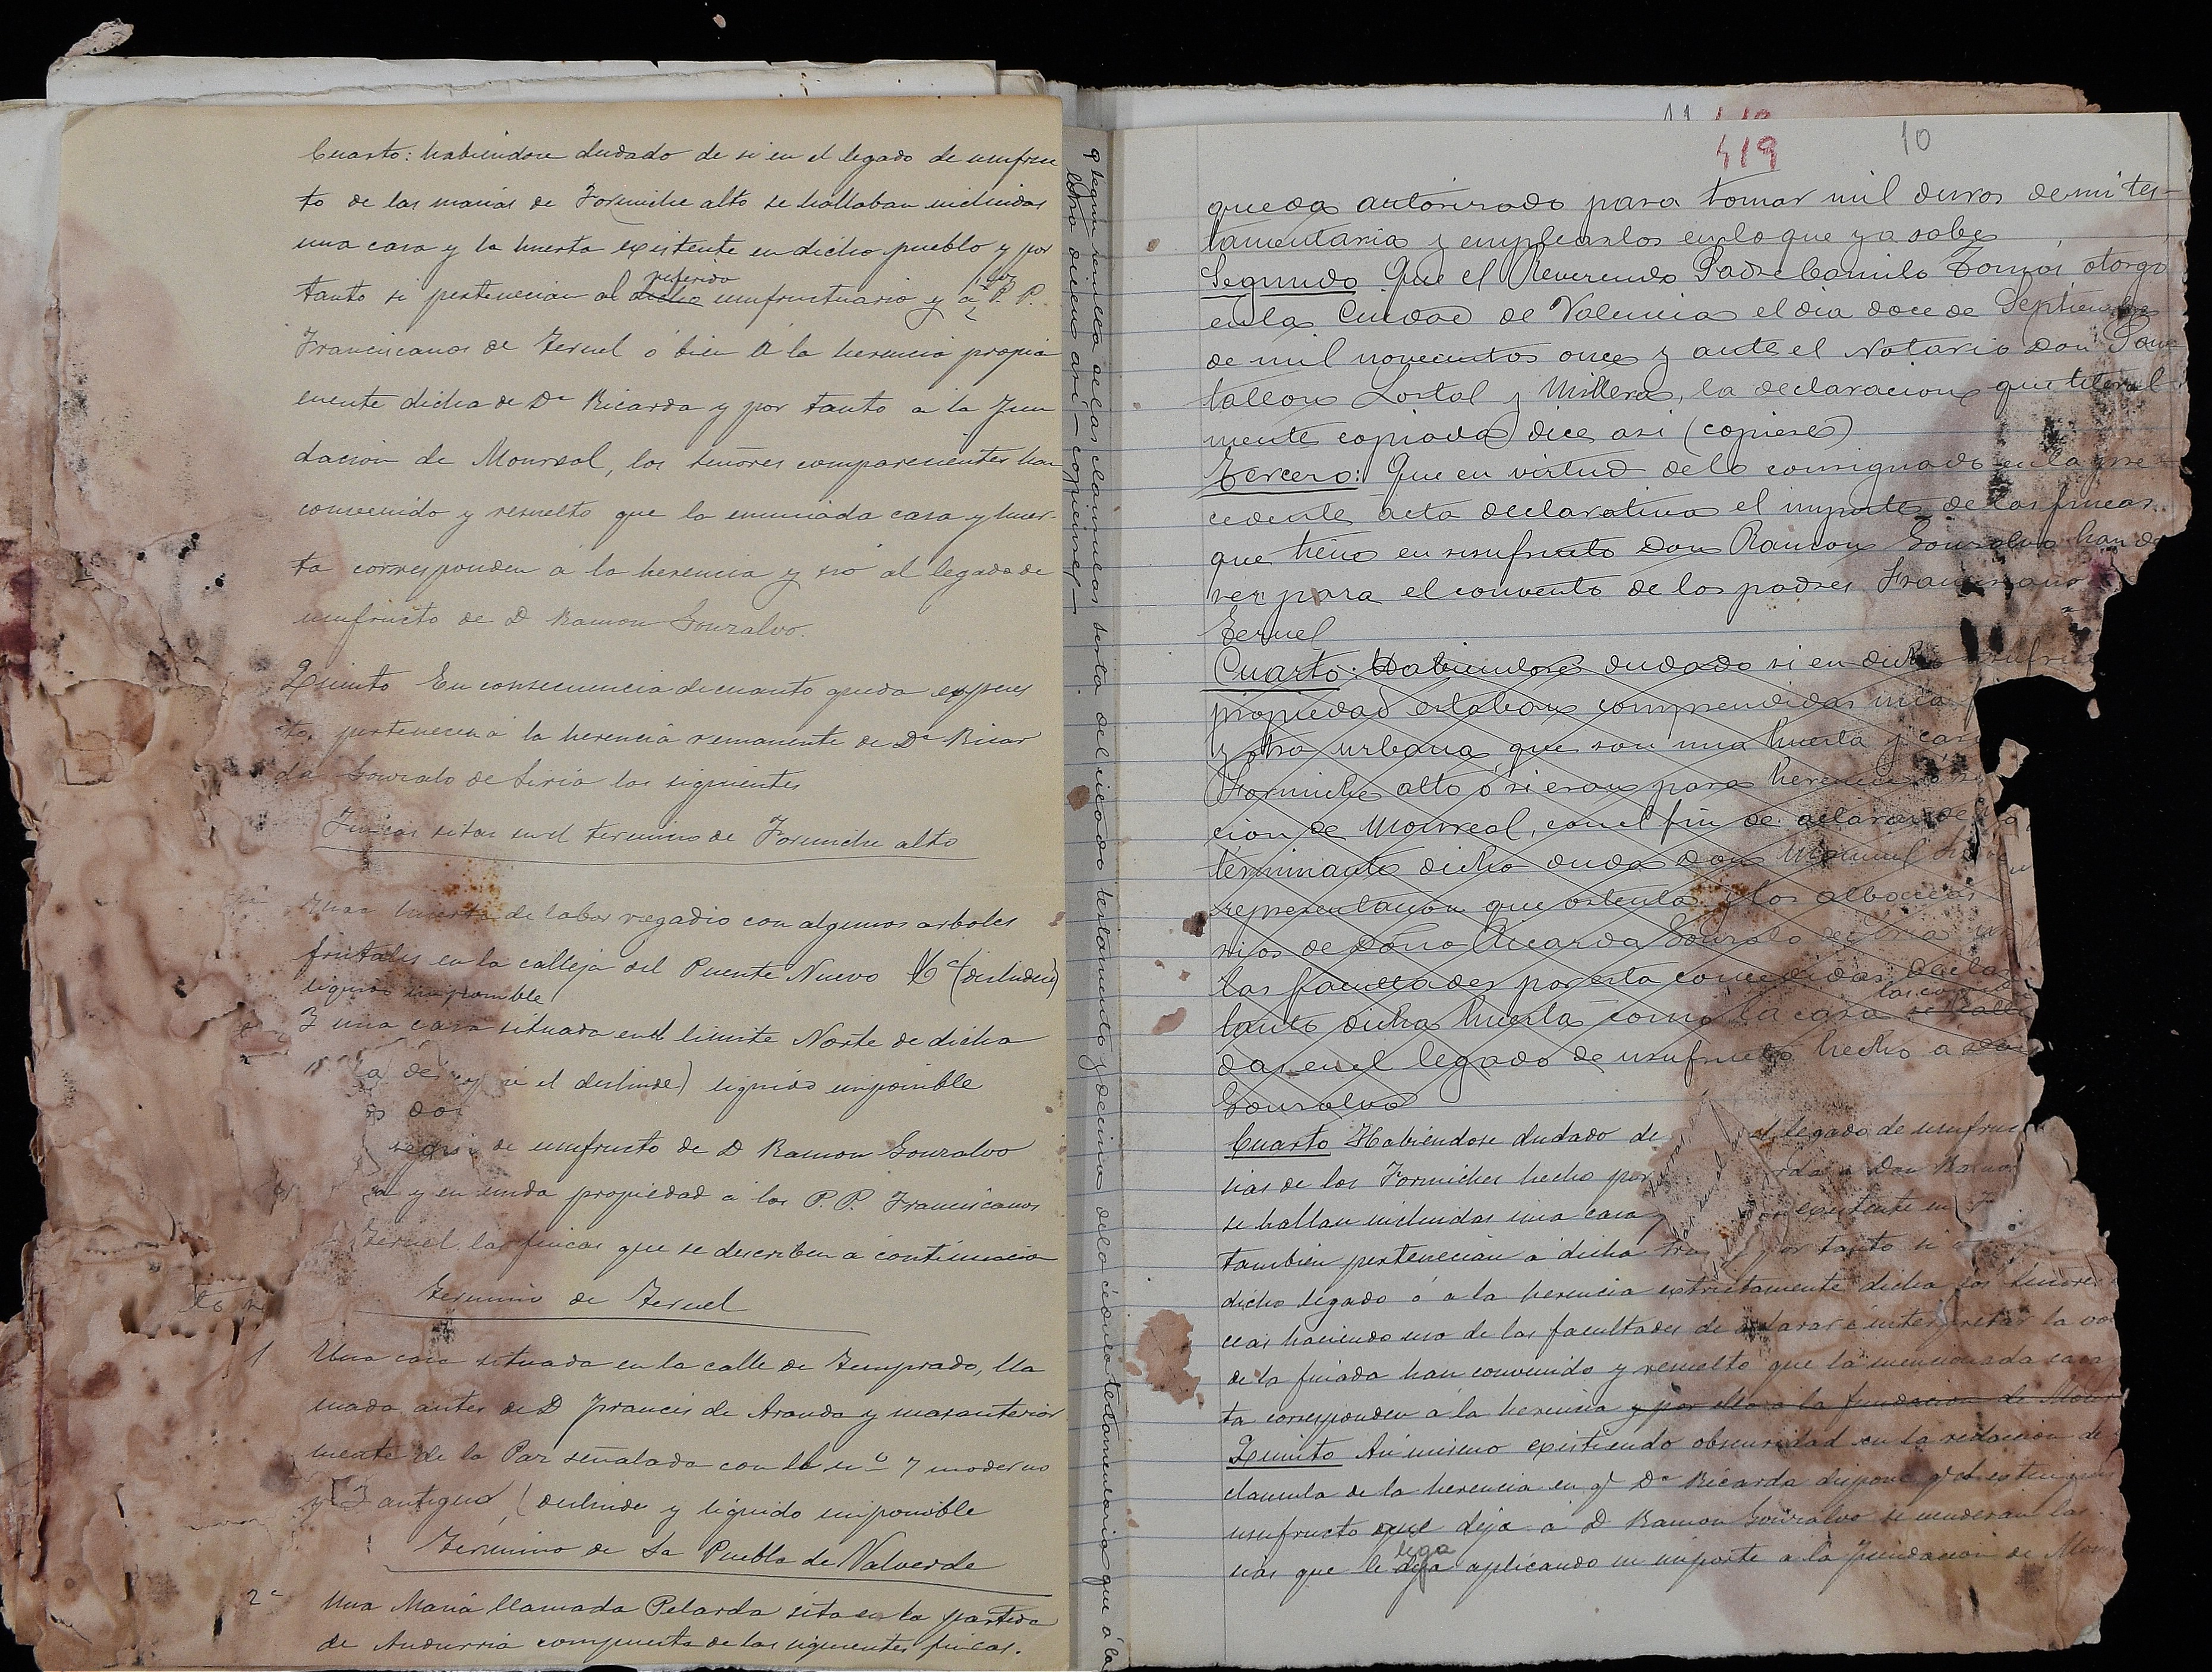 Cuarto: habiendose dudado de si en el legado de usufruc
to de las masias de Formiche alto se hallaban incluidas
una casa y la huerta existente en dicho pueblo y por
tanto si pertenecian al dicho referido usufructuario y a los P. P.
Franciscanos de Teruel ó bien á la herencia propia
mente dicha de Dª Ricarda y por tanto a la Fun
dacion de Monreal, los señores comparecientes han
convenido y resuelto que la enunciada casa y huer-
ta corresponden á la herencia y nó al legado de
usufructo de D Ramon Gonzalvo.
Quinto En consecuencia de cuanto queda expues
to, pertenecen á la herencia remanente de Dª Ricar
da Gonzalo de Liria las siguientes
Fincas sitas en el termino de Formiche alto
Una huerta de labor regadio con algunos arboles
frutales en la calleja del Puente Nuevo (deslinde)
liquido imponible
Y una casa situada en el limite Norte de dicha
el deslinde) liquido imponible
de usufructo de D Ramon Gonzalvo
y en nuda propiedad á los P. P. Franciscanos
Teruel, las fincas que se describen á continuacion
Termino de Teruel
1 Una casa situada en la calle de Temprado, lla
mada antes de D Francis de Aranda y mas anterior
mente de la Paz señalada con el nº 7 moderno
y 3 antiguo (deslinde y liquido imponible
Termino de La Puebla de Valverde
2ª Una Masia llamada Pelarda sita en la partida
de Andurria compuesta de las siguientes fincas.
q segun resulta de las clausulas sexta del citado testamento y decima de la cedula testamentaria que á la
letra dicen asi - copiense -
419
10
queda autorizado para tomar mil duros de mi tes-
tamentaria y emplearlos en lo que ya sabe
Segundo Que el Reverendo Padre Camilo Tomás otorgó
en la Ciudad de Valencia el dia doce de Septiembre
de mil novecientos once y ante el Notario Don Pan
taleon Lostal y Millera, la declaracion que literal-
mente copiada dice asi (copiese)
Tercero: Que en virtud de lo consignado en la pre-
cedente acta declarativa el importe de las fincas
que tiene en usufructo Don Ramon Gonzalvo han de
ser para el convento de los padres Franciscano
Teruel
Cuarto: Habiendose dudado si en dicho usufru
propiedad estaban comprendidas una
y otra urbana, que son una huerta y casa
Formiche alto ó si eran para herencia
cion de Monreal, con el fin de aclarar de
terminante dicha duda Don Manuel
representacion que ostenta y los albaceas
rios de Doña Ricarda Gonzalo de Liria
las facultades por esta concedidas declar
tanto dicha huerta como la casa
das en el legado de usufructo hecho a Don
Gonzalvo
Cuarto Habiendose dudado de el legado de usufruc
sias de los Formiches hecho por Don Ramo
se hallan incluidas una casa existente en F
tambien pertenecian a dicha por tanto si
dicho legado ó a la herencia estrictamente dicha los señores
ceas haciendo uso de las facultades de aclarar é interpretar la vo
de la finada han convenido y resuelto que la mencionada casa
ta corresponden á la herencia y por ello a la fundacion de Monr
Quinto Asi mismo existiendo obscuridad en la redaccion de
clausula de la herencia en q Dª Ricarda dispone q al extinguir
usufructo que deja á D Ramon Gonzalvo se venderan las
sias que le deja lega aplicando su importe a la fundacion de Mon